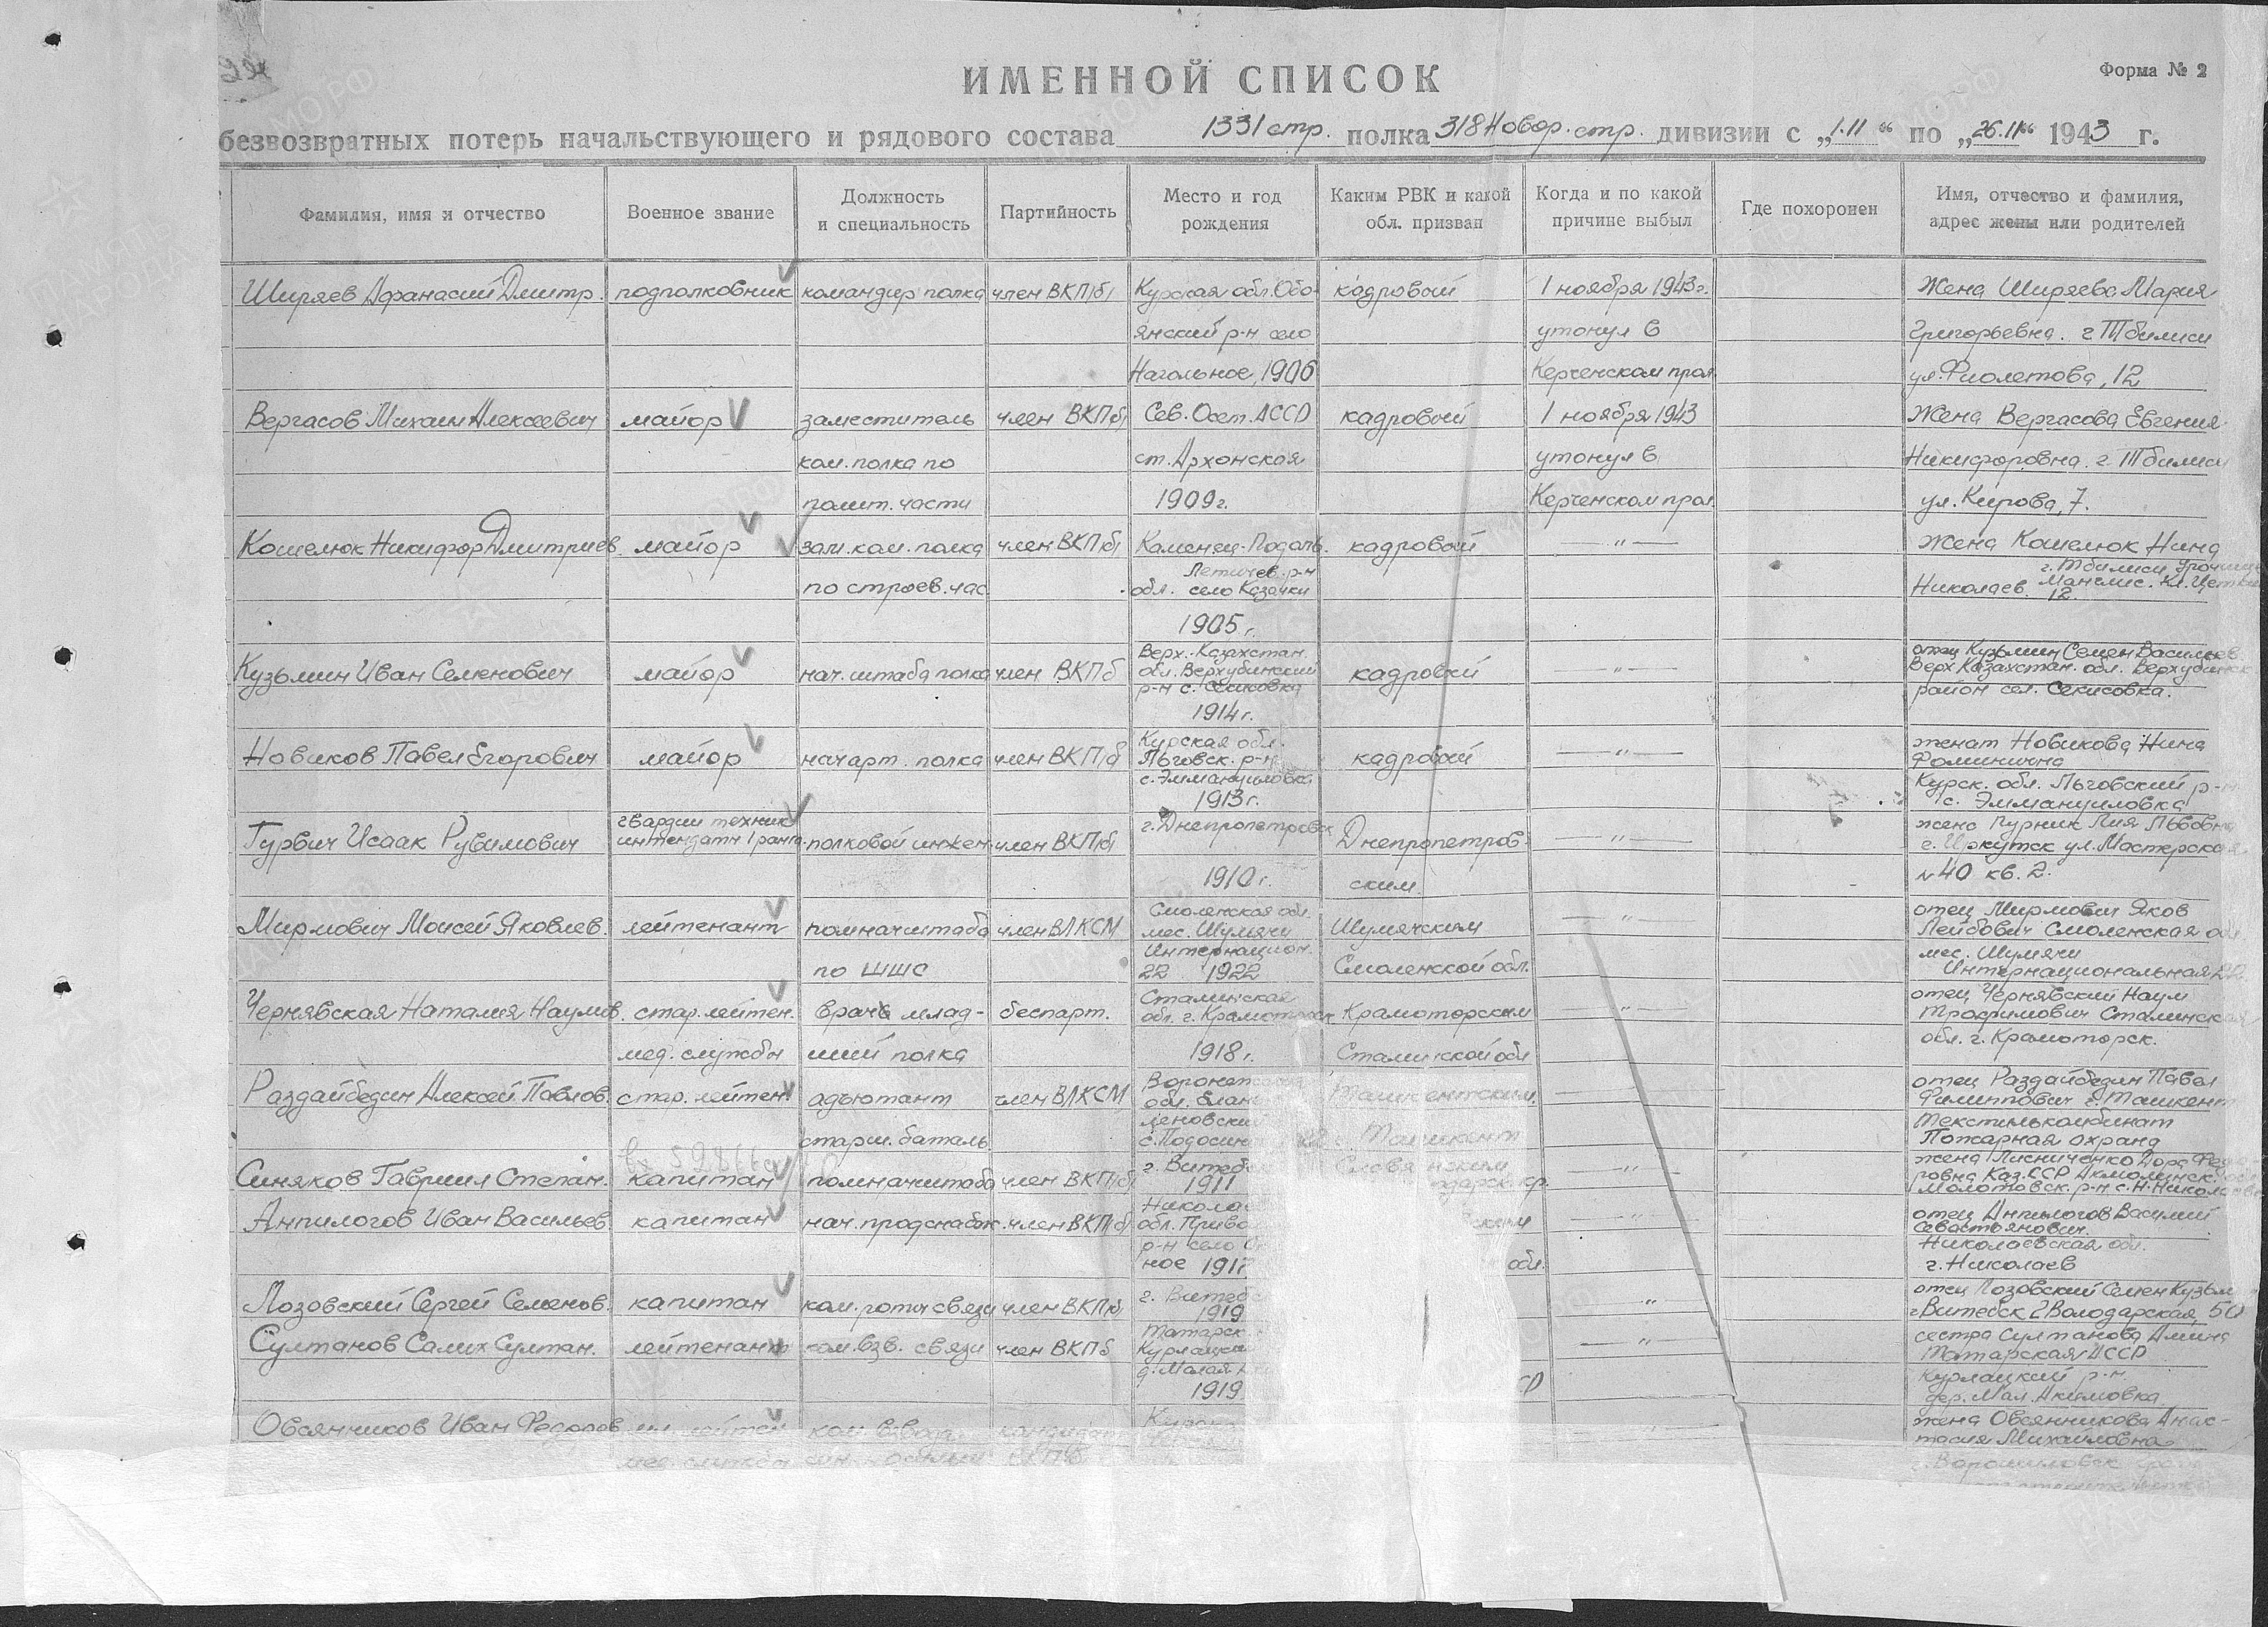 Форма № 2
ИМЕННОЙ СПИСОК
безвозвратных потерь начальствующего и рядового состава 1331 стр. полка 318 Новор. стр. дивизии с „1.11“ по „26.11“ 1943 г.
Фамилия, имя и отчество | Военное звание | Должность и специальность | Партийность | Место и год рождения | Каким РВК и какой обл. призван | Когда и по какой причине выбыл | Где похоронен | Имя, отчество и фамилия, адрес жены или родителей
Ширяев Афанасий Дмитр. подполковник командир полка член ВКП/б/ Курская обл. Обо- кадровый 1 ноября 1943г. Жена Ширяева Мария
янский р-н село утонул в Григорьевна. г. Тбилиси
Нагольное, 1906 Керченском прол. ул. Фиолетова, 12
Вергасов Михаил Алексеевич майор заместитель член ВКП/б/ Сев. Осет. АССР кадровый 1 ноября 1943 Жена Вергасова Евгения
ком. полка по ст. Архонская утонул в Никифоровна. г. Тбилиси
полит. части 1909г. Керченском прол. ул. Кирова, 7.
Кошелюк Никифор Дмитриев. майор зам. ком. полка член ВКП/б/ Каменец-Подоль. кадровый —"— жена Кошелюк Нина
по строев. час. Летичев. р-н обл. село Казачки Николаев. г. Тбилиси урочище Манглис. Кл. Цеткин
12.
1905 г.
Кузьмин Иван Семенович майор нач. штаба полка член ВКПб Верх.-Казахстан. обл. Верхубинский р-н с. Секисовка кадровый —"— отец Кузьмин Семен Васильев.
Верх. Казахстан. обл. Верхубинск
район сел. Секисовка.
1914г.
Новиков Павел Егорович майор начарт. полка член ВКП/б Курская обл. Льговск. р-н с. Эммануиловка кадровый —"— женат Новикова Нина
Фоминична
1913г. Курск. обл. Льговский р-н
с. Эммануиловка
Гурвич Исаак Рувимович гвардии техник интендант 1 ранга полковой инжен. член ВКП/б/ г. Днепропетровск Днепропетров- —"— жена Пурник Лия Львовна
г. Иркутск ул. Мастерская
1910г. ским. №40 кв. 2.
Мирмович Моисей Яковлев. лейтенант помначштаба член ВЛКСМ Смоленская обл. мес. Шумячи Шумячским —"— отец Мирмович Яков
Лейбович Смоленская обл.
по ШШС Интернацион. 22 1922 Смоленской обл. мес. Шумячи
Интернациональная 22
Чернявская Наталия Наумов. стар. лейтен. врач млад- беспарт. Сталинская обл. г. Краматорск Краматорским —"— отец Чернявский Наум
Трофимович Сталинская
мед. службы ший полка 1918г. Сталинской обл обл. г. Краматорск.
Раздайбедин Алексей Павлов. стар. лейтен. адъютант член ВЛКСМ Воронежская обл. Ташкентским —"— отец Раздайбедин Павел
Филиппович г. Ташкент
старш. баталь. с. Подосин г. Ташкент Текстилькомбинат
Пожарная охрана
Синяков Гавриил Степан. капитан помначштаба член ВКП/б/ г. Витебс 1911 Славянским —"— жена Лисниченко Дора Федо-
ровна Каз.ССР Акмолинск. обл
Молотовск. р-н с. Н-Николаевка
Анпилогов Иван Васильев. капитан нач. продснабж. член ВКП/б/ Никола обл. Приво —"— отец Анпилогов Василий
Севастьянович.
р-н село Николаевская обл.
ное 191 обл. г. Николаев
Лозовский Сергей Семенов. капитан ком. роты связи член ВКП/б/ г. Витебс 1919 —"— отец Лозовский Семен Кузьм
г. Витебск 2 Володарская 50
Султанов Салих Султан. лейтенант ком. взв. связи член ВКПб Татарск. Курлацки —"— сестра Султанова Амина
Татарская АССР
д. Малая 1919 Курлацкий р-н.
дер. Мал. Акимовка
Овсянников Иван Федоров мл. лейтен ком. взвода кандидат Курск —"— жена Овсянникова Анас-
тасия Михайловна
мед. службы сан. ВКП/б г. Ворошиловск